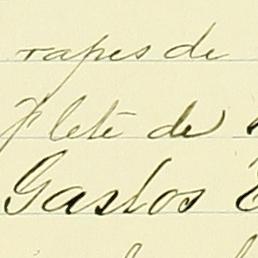 rapes de
Flete de
Gastos